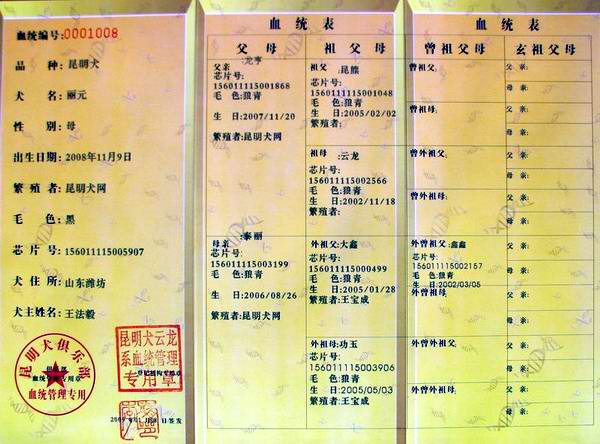 血统编号:0001008
品　种:昆明犬
犬　名:丽元
性　别:母
出生日期:2008年11月9日
繁殖者:昆明犬网
毛　色:黑
芯片号:156011115005907
犬住所:山东潍坊
犬主姓名:王法毅
昆明犬俱乐部
血统管理专用章
血统管理专用
昆明犬云龙
系血统管理
专用章
血统表
父母
祖父母
父亲:龙亨
芯片号:
156011115001868
毛　色:狼青
生　日:2007/11/20
繁殖者:昆明犬网
母亲:泰丽
芯片号:
156011115003199
毛　色:狼青
生　日:2006/08/26
繁殖者:昆明犬网
祖父:昆熊
芯片号:
156011115001048
毛　色:狼青
生　日:2005/02/02
繁殖者:
祖母:云龙
芯片号:
156011115002566
毛　色:狼青
生　日:2002/11/18
繁殖者:
外祖父:大鑫
芯片号:
156011115000499
毛　色:狼青
生　日:2005/01/28
繁殖者:王宝成
外祖母:功玉
芯片号:
156011115003906
毛色:狼青
生　日:2005/05/03
繁殖者:王宝成
血统表
曾祖父母
玄祖父母
曾祖父:
曾祖母:
曾外祖父:
曾外祖母:
外曾祖父:鑫鑫
芯片号:
156011115002157
毛色:狼青
生　日:2002/03/05
外曾祖母:
外曾外祖父:
外曾外祖母:
父亲:
母亲:
父亲:
母亲:
父亲:
母亲:
父亲:
母亲:
父亲:
母亲:
父亲:
母亲:
父亲:
母亲:
父亲:
母亲: